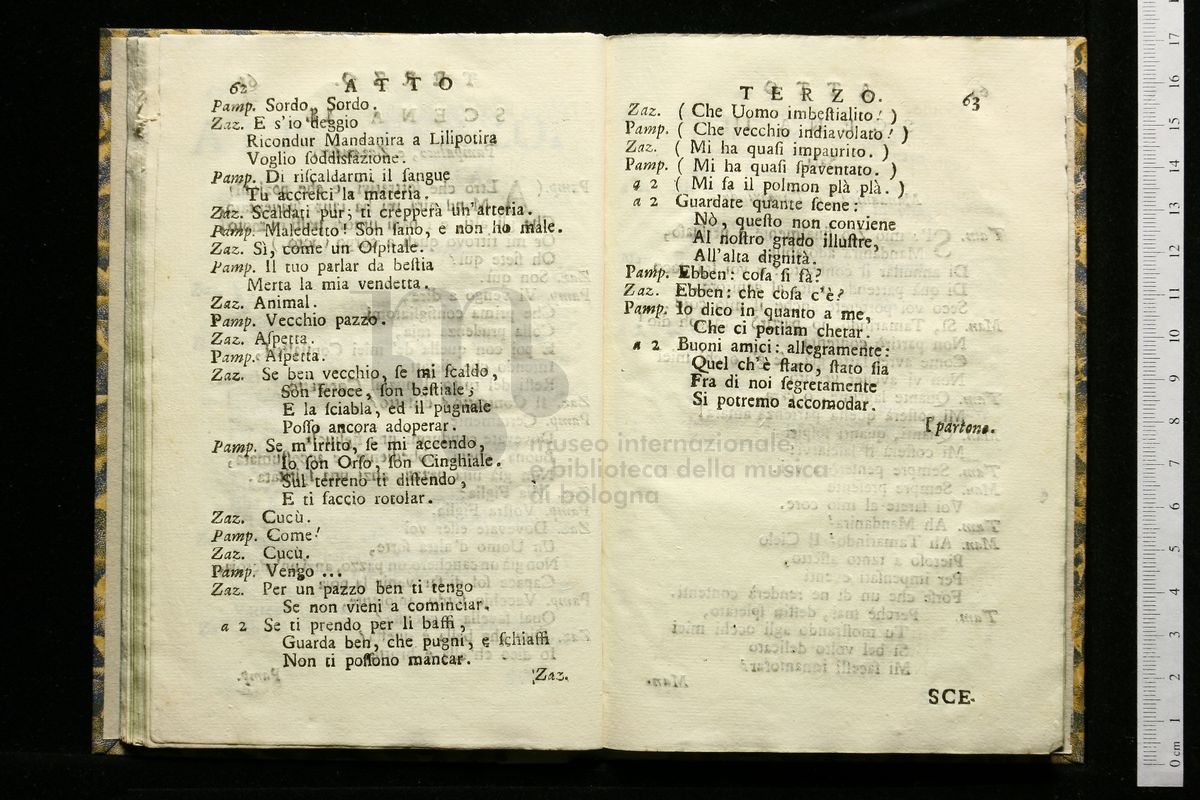 62 ATTO
Pamp. Sordo, Sordo.
Zaz. E s'io deggio
Ricondur Mandanira a Lilipotira
Voglio ſoddisfazione.
Pamp. Di riſcaldarmi il ſangue
Tu accreſci la materia.
Zaz. Scaldati pur; ti crepperà un'arteria.
Pamp. Maledetto! Son ſano, e non ho male.
Zaz. Sì, come un Oſpitale.
Pamp. Il tuo parlar da beſtia
Merta la mia vendetta.
Zaz. Animal.
Pamp. Vecchio pazzo.
Zaz. Aſpetta.
Pamp. Aſpetta.
Zaz. Se ben vecchio, ſe mi ſcaldo,
Son feroce, ſon beſtiale;
E la ſciabla, ed il pugnale
Poſſo ancora adoperar.
Pamp. Se m'irrito, ſe mi accendo,
Io ſon Orſo, ſon Cinghiale.
Sul terreno ti diſtendo,
E ti faccio rotolar.
Zaz. Cucù.
Pamp. Come!
Zaz. Cucù.
Pamp. Vengo ...
Zaz. Per un pazzo ben ti tengo
Se non vieni a cominciar.
a 2 Se ti prendo per li baffi,
Guarda ben, che pugni, e ſchiaffi
Non ti poſſono mancar.
Zaz.
TERZO. 63
Zaz. ( Che Uomo imbeſtialito! )
Pamp. ( Che vecchio indiavolato! )
Zaz. ( Mi ha quaſi impaurito. )
Pamp. ( Mi ha quaſi ſpaventato. )
a 2 ( Mi fa il polmon plà plà. )
a 2 Guardate quante ſcene:
Nò, queſto non conviene
Al noſtro grado illuſtre,
All'alta dignità.
Pamp. Ebben: coſa ſi fà?
Zaz. Ebben: che coſa c'è?
Pamp. Io dico in quanto a me,
Che ci potiam chetar.
a 2 Buoni amici: allegramente:
Quel ch'è ſtato, ſtato ſia
Fra di noi ſegretamente
Si potremo accomodar.
partono.
SCE-
museo internazionale
e biblioteca della musica
di bologna
0 cm 1 2 3 4 5 6 7 8 9 10 11 12 13 14 15 16 17